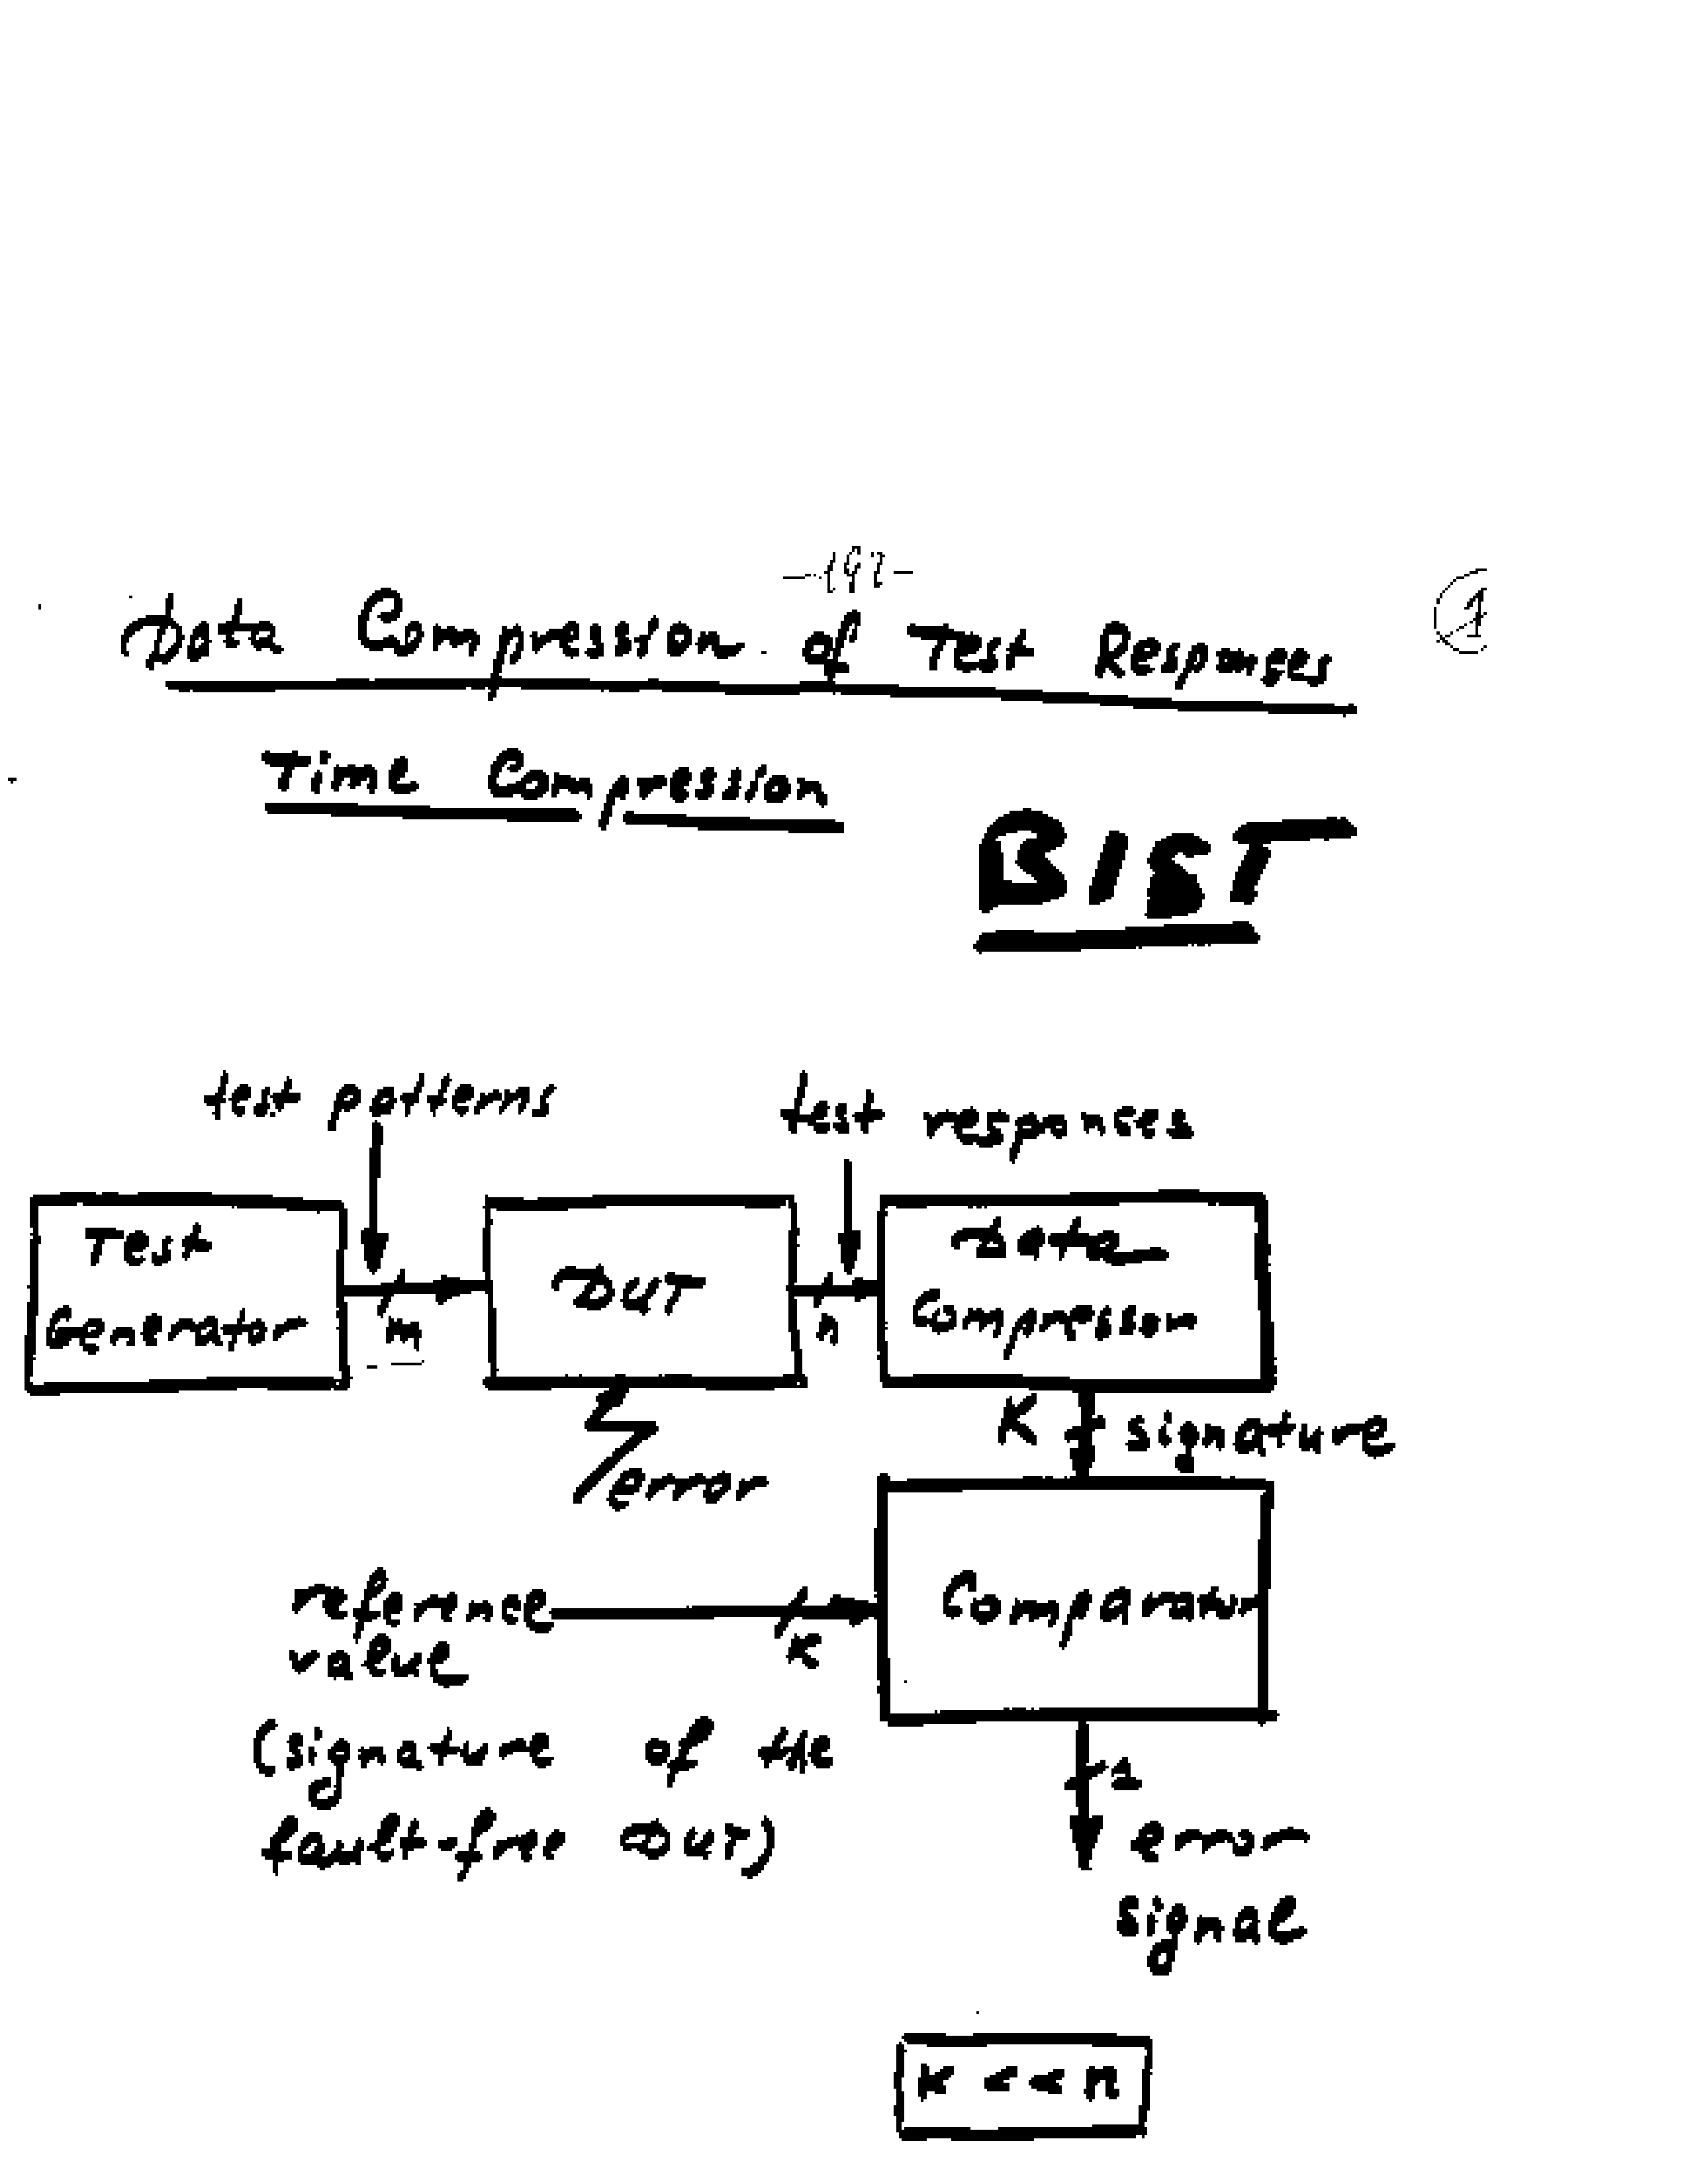 Data Compression of Test Responses
1
Time Compression
BIST
test patterns
test responses
Test
Generator
m
DUT
n
Data
Compressor
K
signature
error
reference
value
K
Comparator
(signature of the
fault-free DUT)
1
error
signal
K << n